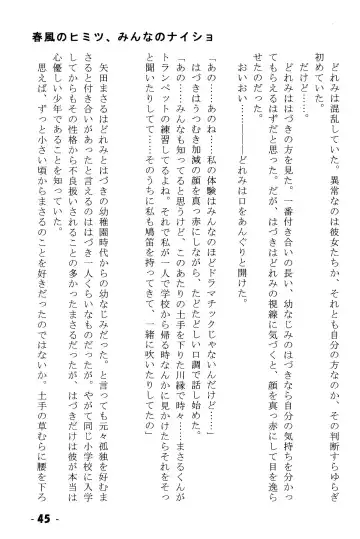 春風のヒミツ、みんなのナイショ
どれみは混乱していた。異常なのは彼女たちか、それとも自分の方なのか、その判断すらゆらぎ
初めていた。
だけど……。
どれみははづきの方を見た。一番付き合いの長い、幼なじみのはづきなら自分の気持ちを分かっ
てもらえるはずだと思った。だが、はづきはどれみの視線に気づくと、顔を真っ赤にして目を逸ら
せたのだった。
おいおい………どれみは口をあんぐりと開けた。
「あの……あのね……私の体験はみんなのほどドラマチックじゃないんだけど……」
はづきはうつむき加減の顔を真っ赤にしながら、たどたどしい口調で話し始めた。
「あの……みんなも知ってると思うけど、このあたりの土手を下りた川縁で時々……まさるくんが
トランペットの練習してるよね。それで私が一人で学校から帰る時なんかに見かけたらそれをそっ
と聞いたりしてて……そのうちに私も鳩笛を持ってきて、一緒に吹いたりしてたの」
矢田まさるはどれみとはづきの幼稚園時代からの幼なじみだった。と言っても元々孤独を好むま
さると付き合いがあったと言えるのははづき一人くらいなものだった。やがて同じ小学校に入学
してからもその性格から不良扱いされることの多かったまさるだったが、はづきだけは彼が本当は
心優しい少年であることを知っていた。
思えば、ずっと小さい頃からまさるのことを好きだったのではないか。土手の草むらに腰を下ろ
- 45 -